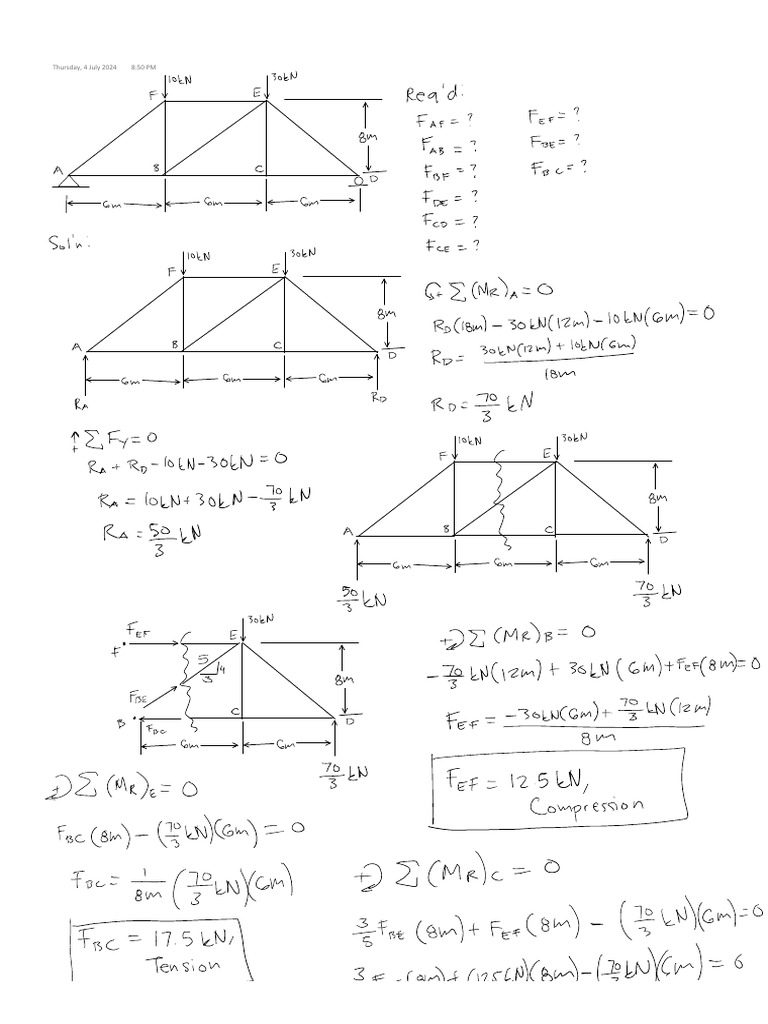 Thursday, 4 July 2024 8:50 PM
10kN 30kN
F E
8m
A B C D
6m 6m 6m
Req'd:
F_AF = ? F_EF = ?
F_AB = ? F_BE = ?
F_BF = ? F_BC = ?
F_DE = ?
F_CD = ?
F_CE = ?
Sol'n:
10kN 30kN
F E
8m
A B C D
6m 6m 6m
R_A R_D
+ Σ(M_R)_A = 0
R_D(18m) - 30kN(12m) - 10kN(6m) = 0
R_D = 30kN(12m) + 10kN(6m)
18m
R_D = 70/3 kN
↑+ ΣF_Y = 0
R_A + R_D - 10kN - 30kN = 0
R_A = 10kN + 30kN - 70/3 kN
R_A = 50/3 kN
10kN 30kN
F E
8m
A B C D
6m 6m 6m
50/3 kN 70/3 kN
30kN
F_EF E
F
5 4
3
8m
F_BE
B F_BC C D
6m 6m
70/3 kN
+ Σ(M_R)_B = 0
-70/3 kN(12m) + 30kN(6m) + F_EF(8m) = 0
F_EF = -30kN(6m) + 70/3 kN(12m)
8m
F_EF = 12.5 kN,
Compression
+ Σ(M_R)_E = 0
F_BC(8m) - (70/3 kN)(6m) = 0
F_BC = 1/8m (70/3 kN)(6m)
F_BC = 17.5 kN,
Tension
+ Σ(M_R)_C = 0
3/5 F_BE(8m) + F_EF(8m) - (70/3 kN)(6m) = 0
(12.5kN)(8m) - (70/3 kN)(6m) = 0